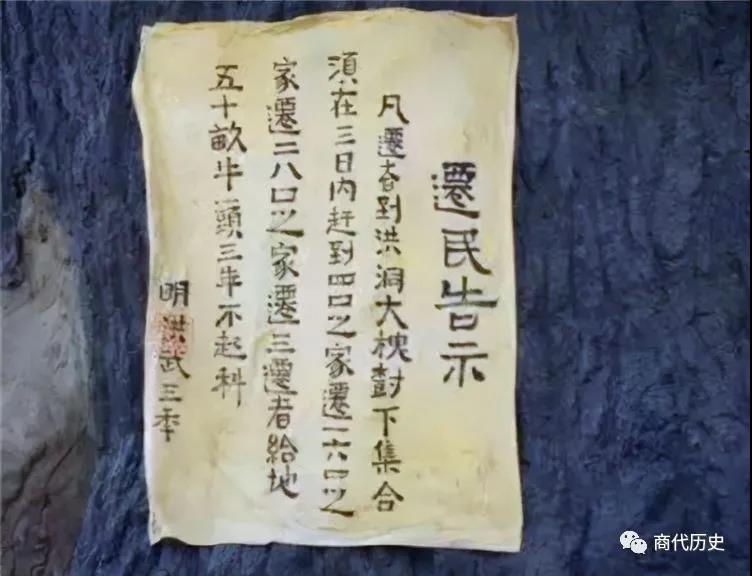 遷民告示
凡遷者到洪洞大槐樹下集合
須在三日内赶到四口之家遷一六口之
家遷二八口之家遷三遷者給地
五十畝牛頭三年不起科
明洪武三年
商代历史